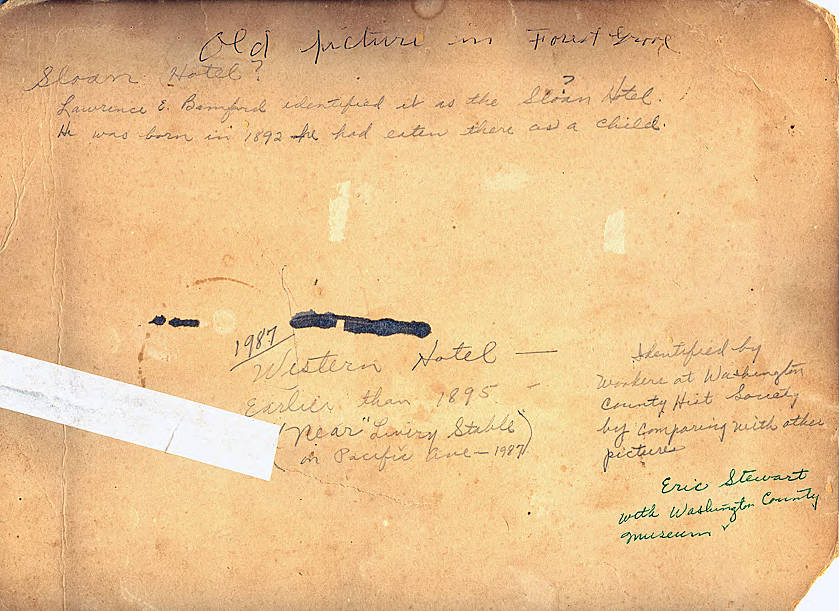 Old picture in Forest Grove
Sloan Hotel?
?
Lawrence E. Bamford identified it as the Sloan Hotel.
He was born in 1892 he had eaten there as a child.
1987
Western Hotel —
Earlier than 1895 -
(Near "Livery Stable)
on Pacific Ave — 1987
Identified by
workers at Washington
County Hist Society
by comparing with other
pictures
Eric Stewart
with Washington County
Museum